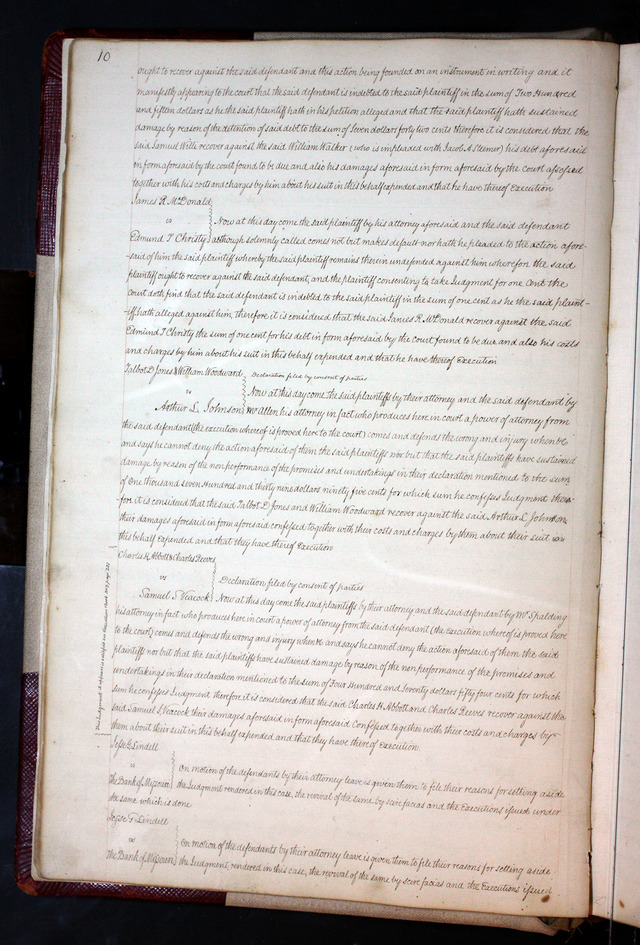 10
ought to recover against the said defendant and this action being founded on an instrument in writing and it
manifestly appearing to the court that the said defendant is indebted to the said plaintiff in the sum of Two Hundred
and fifteen dollars as he the said plaintiff hath in his petition alleged and that the said plaintiff hath sustained
damage by reason of the detention of said debt to the sum of Seven dollars forty two cents therefore it is considered that the
said Samuel Wills recover against the said William Walker (who is impleaded with Jacob A Stemur) his debt aforesaid
in form aforesaid by the court found to be due and also his damages aforesaid in form aforesaid by the Court assessed
together with his costs and charges by him about his suit in this behalf expended and that he have thereof Execution
James R. McDonald
vs
Now at this day come the said plaintiff by his attorney aforesaid and the said defendant
Edmund T Christy although solemnly called comes not but makes default nor hath he pleaded to the action afore-
-said of him the said plaintiff whereby the said plaintiff remains therein undefended against him wherefore the said
plaintiff ought to recover against the said defendant, and the plaintiff consenting to take Judgment for one cent the
Court doth find that the said defendant is indebted to the said plaintiff in the sum of one cent as he the said plaint-
-iff hath alleged against him, therefore it is considered that the said James R. McDonald recover against the said
Edmund T Christy the sum of one cent for his debt in form aforesaid by the court found to be due and also his costs
and charges by him about his suit in this behalf expended and that he have thereof Execution
Talbot D Jones & William Woodward Declaration filed by consent of parties
vs
Now at this day come the said plaintiffs by their attorney and the said defendant by
Arthur L. Johnson Mr Allen his attorney in fact who produces here in court a power of attorney from
the said defendant (the execution whereof is proved here to the court) comes and defends the wrong and injury when &c
and says he cannot deny the action aforesaid of them the said plaintiffs nor but that the said plaintiffs have sustained
damage by reason of the nonperformance of the promises and undertakings in their declaration mentioned to the sum
of One thousand Seven Hundred and thirty nine dollars ninety five cents for which sum he confesses Judgment there-
fore it is considered that the said Talbot D Jones and William Woodward recover against the said Arthur L Johnson
their damages aforesaid in form aforesaid confessed together with their costs and charges by them about their suit in
this behalf Expended and that they have thereof Execution
Charles H Abbott & Charles Reeves
vs
Declaration filed by consent of parties
Samuel S. Veacock Now at this day come the said plaintiffs by their attorney and the said defendant by Mr Spalding
his attorney in fact who produces here in court a power of attorney from the said defendant (the Execution whereof is proved here
to the court) comes and defends the wrong and injury when &c and says he cannot deny the action aforesaid of them the said
plaintiffs nor but that the said plaintiffs have sustained damage by reason of the non performance of the promises and
undertakings in their declaration mentioned to the sum of Four Hundred and Seventy dollars fifty four cents for which
sum he confesses Judgment therefore it is considered that the said Charles H. Abbott and Charles Reeves recover against the
said Samuel S. Veacock their damages aforesaid in form aforesaid Confessed together with their costs and charges by
them about their suit in this behalf expended and that they have thereof Execution.
Jesse G Lindell
vs
On motion of the defendants by their attorney leave is given them to file their reasons for setting aside
The Bank of Missouri the Judgment rendered in this case, the revival of the same by scire facias and the Executions issued under
the same which is done
Jesse G Lindell
vs
On motion of the defendants by their attorney leave is given them to file their reasons for setting aside
The Bank of Missouri the Judgment, rendered in this case, the revival of the same by scire facias and the Executions issued